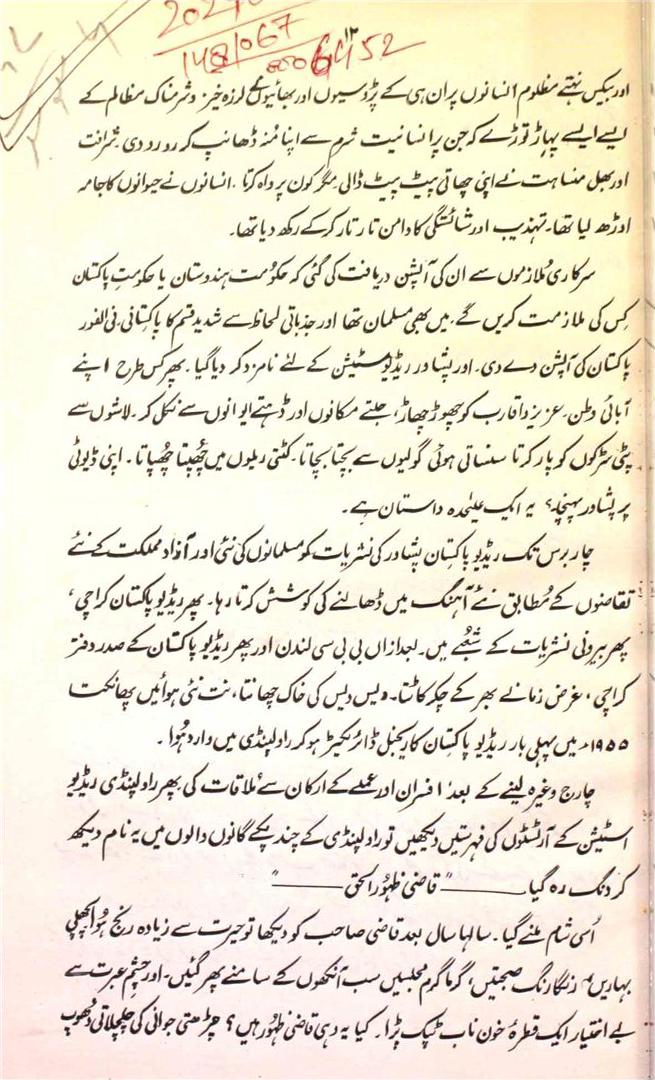 ۱۲
148/067
اور بیکس نہتے مظلوم انسانوں پر ان ہی کے پڑوسیوں اور بھائیوں نے لرزہ خیز و شرمناک مظالم کے
ایسے ایسے پہاڑ توڑے کہ جن پر انسانیت شرم سے اپنا مُنہ ڈھانپ کر رو دی۔ شرافت
اور بھل منساہت نے اپنی چھاتی پیٹ پیٹ ڈالی مگر کون پرواہ کرتا۔ انسانوں نے حیوانوں کا جامہ
اوڑھ لیا تھا۔ تہذیب اور شائستگی کا دامن تار تار کر کے رکھ دیا تھا۔
سرکاری مُلازموں سے ان کی آپشن دریافت کی گئی کہ حکومت ہندوستان یا حکومتِ پاکستان
کِس کی ملازمت کریں گے۔ میں بھی مسلمان تھا اور جذباتی لحاظ سے شدید قسم کا پاکستانی۔ فی الفور
پاکستان کی آپشن دے دی۔ اور پشاور ریڈیو سٹیشن کے لئے نامزد کر دیا گیا۔ پھر کس طرح اپنے
آبائی وطن۔ عزیز و اقارب کو چھوڑ چھاڑ، جلتے مکانوں اور ڈہتے ایوانوں سے نکل کر۔ لاشوں سے
پٹی سڑکوں کو پار کرتا سنسناتی ہوئی گولیوں سے بچتا بچاتا۔ کٹتی ریلوں میں چُھپتا چُھپاتا۔ اپنی ڈیوٹی
پر پشاور پہنچا؟ یہ ایک علیٰحدہ داستان ہے۔
چار برس تک ریڈیو پاکستان پشاور کی نشریات کو مسلمانوں کی نئی اور آزاد مملکت کے نئے
تقاضوں کے مُطابق نئے آہنگ میں ڈھالنے کی کوشش کرتا رہا۔ پھر ریڈیو پاکستان کراچی،
پھر بیرونی نشریات کے شعبے میں۔ بعد ازاں بی بی سی لندن اور پھر ریڈیو پاکستان کے صدر دفتر
کراچی، غرض زمانے بھر کے چکر کاٹتا۔ دیس دیس کی خاک چھانتا، نت نئی ہوائیں پھانکتا
۱۹۵۵ء میں پہلی بار ریڈیو پاکستان کا ریجنل ڈائریکٹر ہو کر راولپنڈی میں وارد ہُوا۔
چارج وغیرہ لینے کے بعد، افسران اور عملے کے ارکان سے مُلاقات کی پھر راولپنڈی ریڈیو
اسٹیشن کے آرٹسٹوں کی فہرستیں دیکھیں تو راولپنڈی کے چند پکے گانوں والوں میں یہ نام دیکھ
کر دنگ رہ گیا۔ ——— "قاضی ظہُور الحق ———"
اُسی شام ملنے گیا۔ سالہا سال بعد قاضی صاحب کو دیکھا تو حیرت سے زیادہ رنج ہُوا پچھلی
بہاریں، رنگا رنگ صحبتیں، گرما گرم مجلسیں سب آنکھوں کے سامنے پھر گئیں۔ اور چشمِ عبرت سے
بے اختیار ایک قطرۂ خون ناب ٹپک پڑا۔ کیا یہ وہی قاضی ظہُور ہیں؟ چڑھتی جوانی کی چلچلاتی دُھوپ